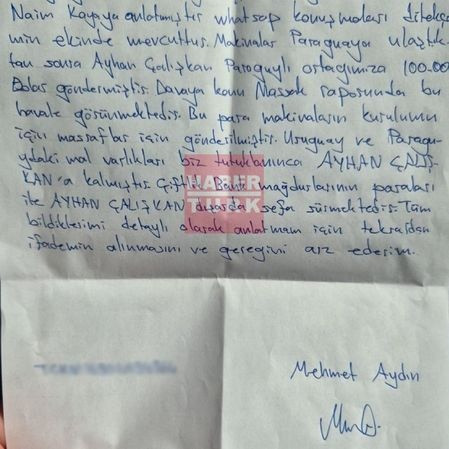 Naim Kaya'ya anlatmıştır whatsap konuşmaları dilekçe-
min ekinde mevcuttur. Makinalar Paraguaya ulaştık-
tan sonra Ayhan Çalışkan Paraguylı ortağımıza 100.00
Dolar göndermiştir. Davaya konu Massak raporunda bu
havale görünmektedir. Bu para makinaların kurulumu
için masraflar için gönderilmiştir. Uruguay ve Paragu-
ydaki mal varlıkları biz tutuklanınca AYHAN ÇALIŞ-
KAN'a kalmıştır. Çiftlik Bank mağdurlarının paraları
ile AYHAN ÇALIŞKAN dışarda sefa sürmektedir. Tüm
bildiklerimi detaylı olarak anlatmam için tekrardan
ifademin alınmasını ve gereğini arz ederim.
HABER
TÜRK
Mehmet Aydın